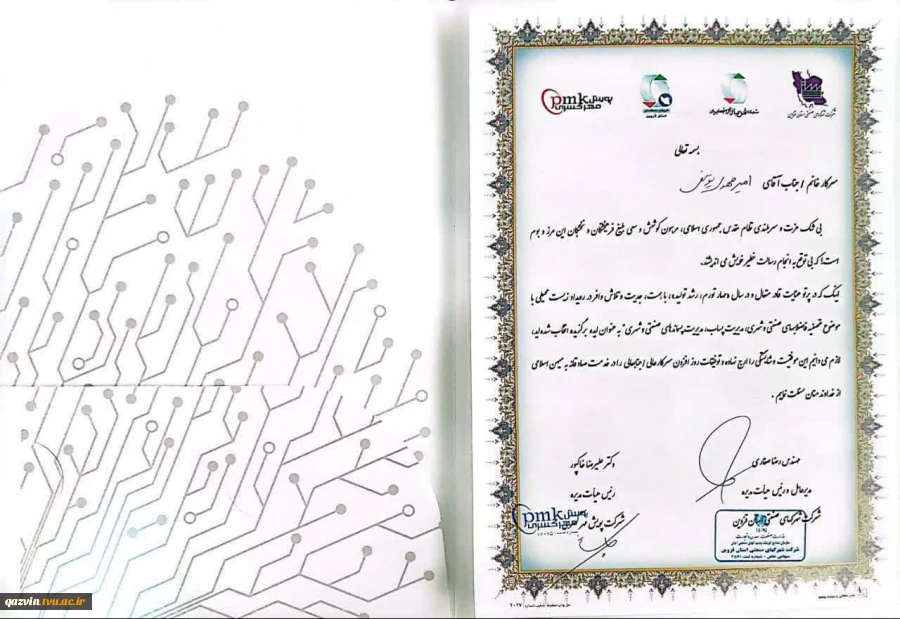 pmk پویش مهر گستری
شرکت شهرکهای صنعتی استان قزوین
بسمه تعالی
سرکار خانم / جناب آقای امیر مهدی یوسفی
بی شک عزت و سربلندی نظام مقدس جمهوری اسلامی، مرهون کوشش و سعی بلیغ فرهیختگان و نخبگان این مرز و بوم
است که بی توقع به انجام رسالت خطیر خویش می اندیشند.
اینک که در پرتو عنایت قادر متعال و در سال «مهار تورم، رشد تولید»، با همت، جدیت و تلاش وافر در رویداد زیست محیطی با
موضوع تصفیه فاضلابهای صنعتی و شهری، مدیریت پساب، مدیریت پسماندهای صنعتی و شهری" به عنوان ایده برگزیده انتخاب شده اید،
لازم می دانیم این موفقیت و شایستگی را ارج نهاده و توفیقات روز افزون سرکارعالی / جنابعالی را در خدمت صادقانه به میهن اسلامی
از خداوند منان مسئلت نماییم.
مهندس رضا صفاری
مدیرعامل و رئیس هیأت مدیره
شرکت شهرکهای صنعتی استان قزوین
دکتر علیرضا خاکپور
رئیس هیأت مدیره
شرکت پویش مهر
pmk پویش مهر گستری
شرکت شهرکهای صنعتی استان قزوین
qazvin.tvu.ac.ir